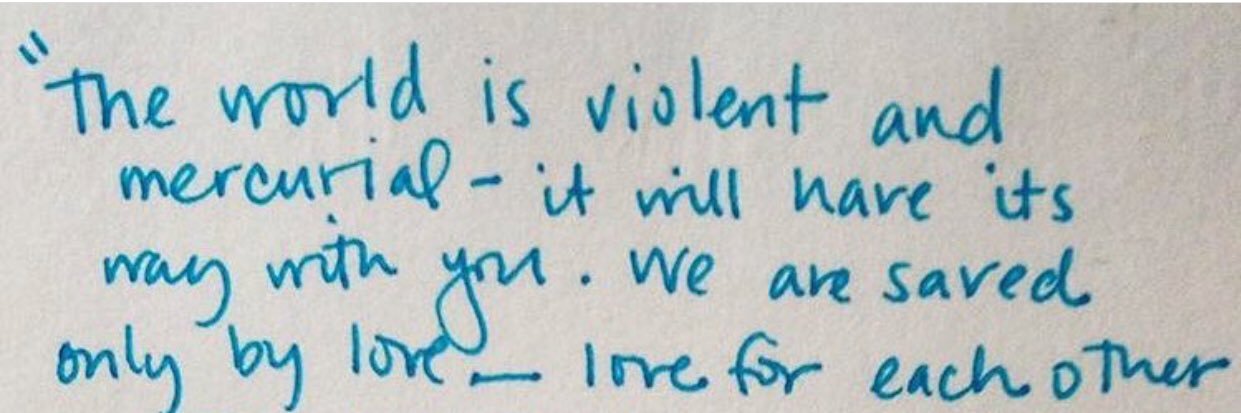 "The world is violent and
mercurial - it will have its
way with you. We are saved
only by love — love for each other